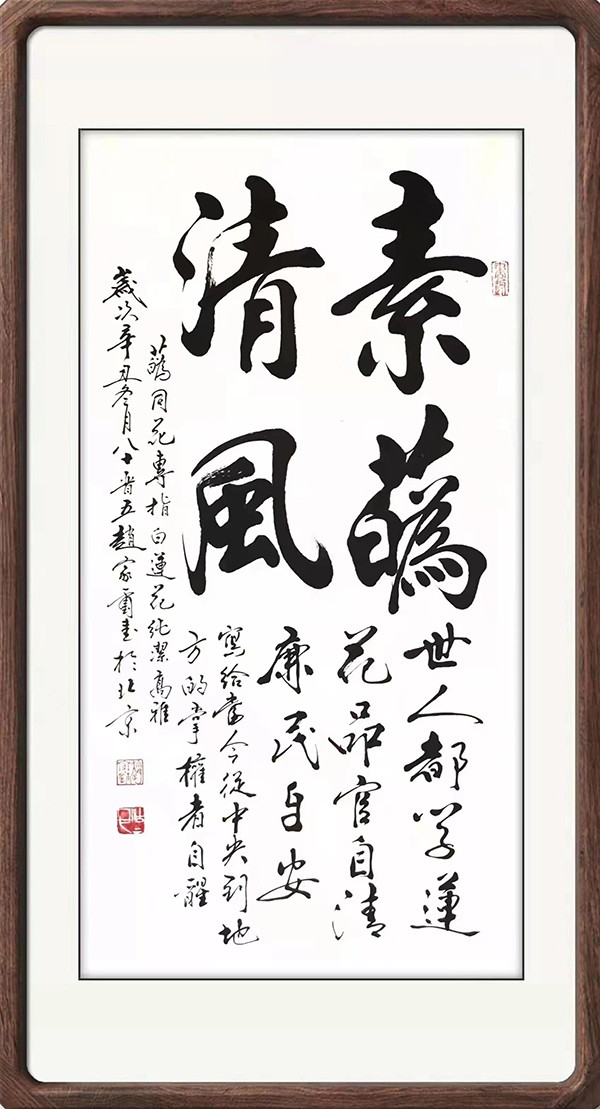 素蘤
清風
世人都学蓮
花品官自清
廉民自安
寫給當今從中央到地
方的掌權者自醒
蘤同花專指白蓮花純潔高雅
歲次辛丑冬月八十晋五趙家書於北京